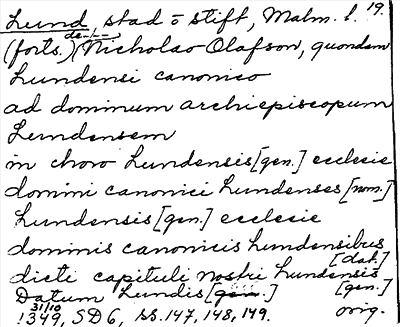 Lund stad o stift, Malm. l. 19.
(forts.) de-/-- Nicholao Olafson, quondam
Lundensi canonico
ad dominum archiepiscopum
Lundensem
in choro Lundensis [gen.] ecclesie
domini canonici Lundenses [nom.]
Lundensis [gen.] ecclesie
dominis canonicis Lundensibus [dat.]
dicti capituli nostri Lundensis [gen.]
Datum Lundis [gen.]
31/10 1349, SD6, ss. 147, 148, 149. orig.